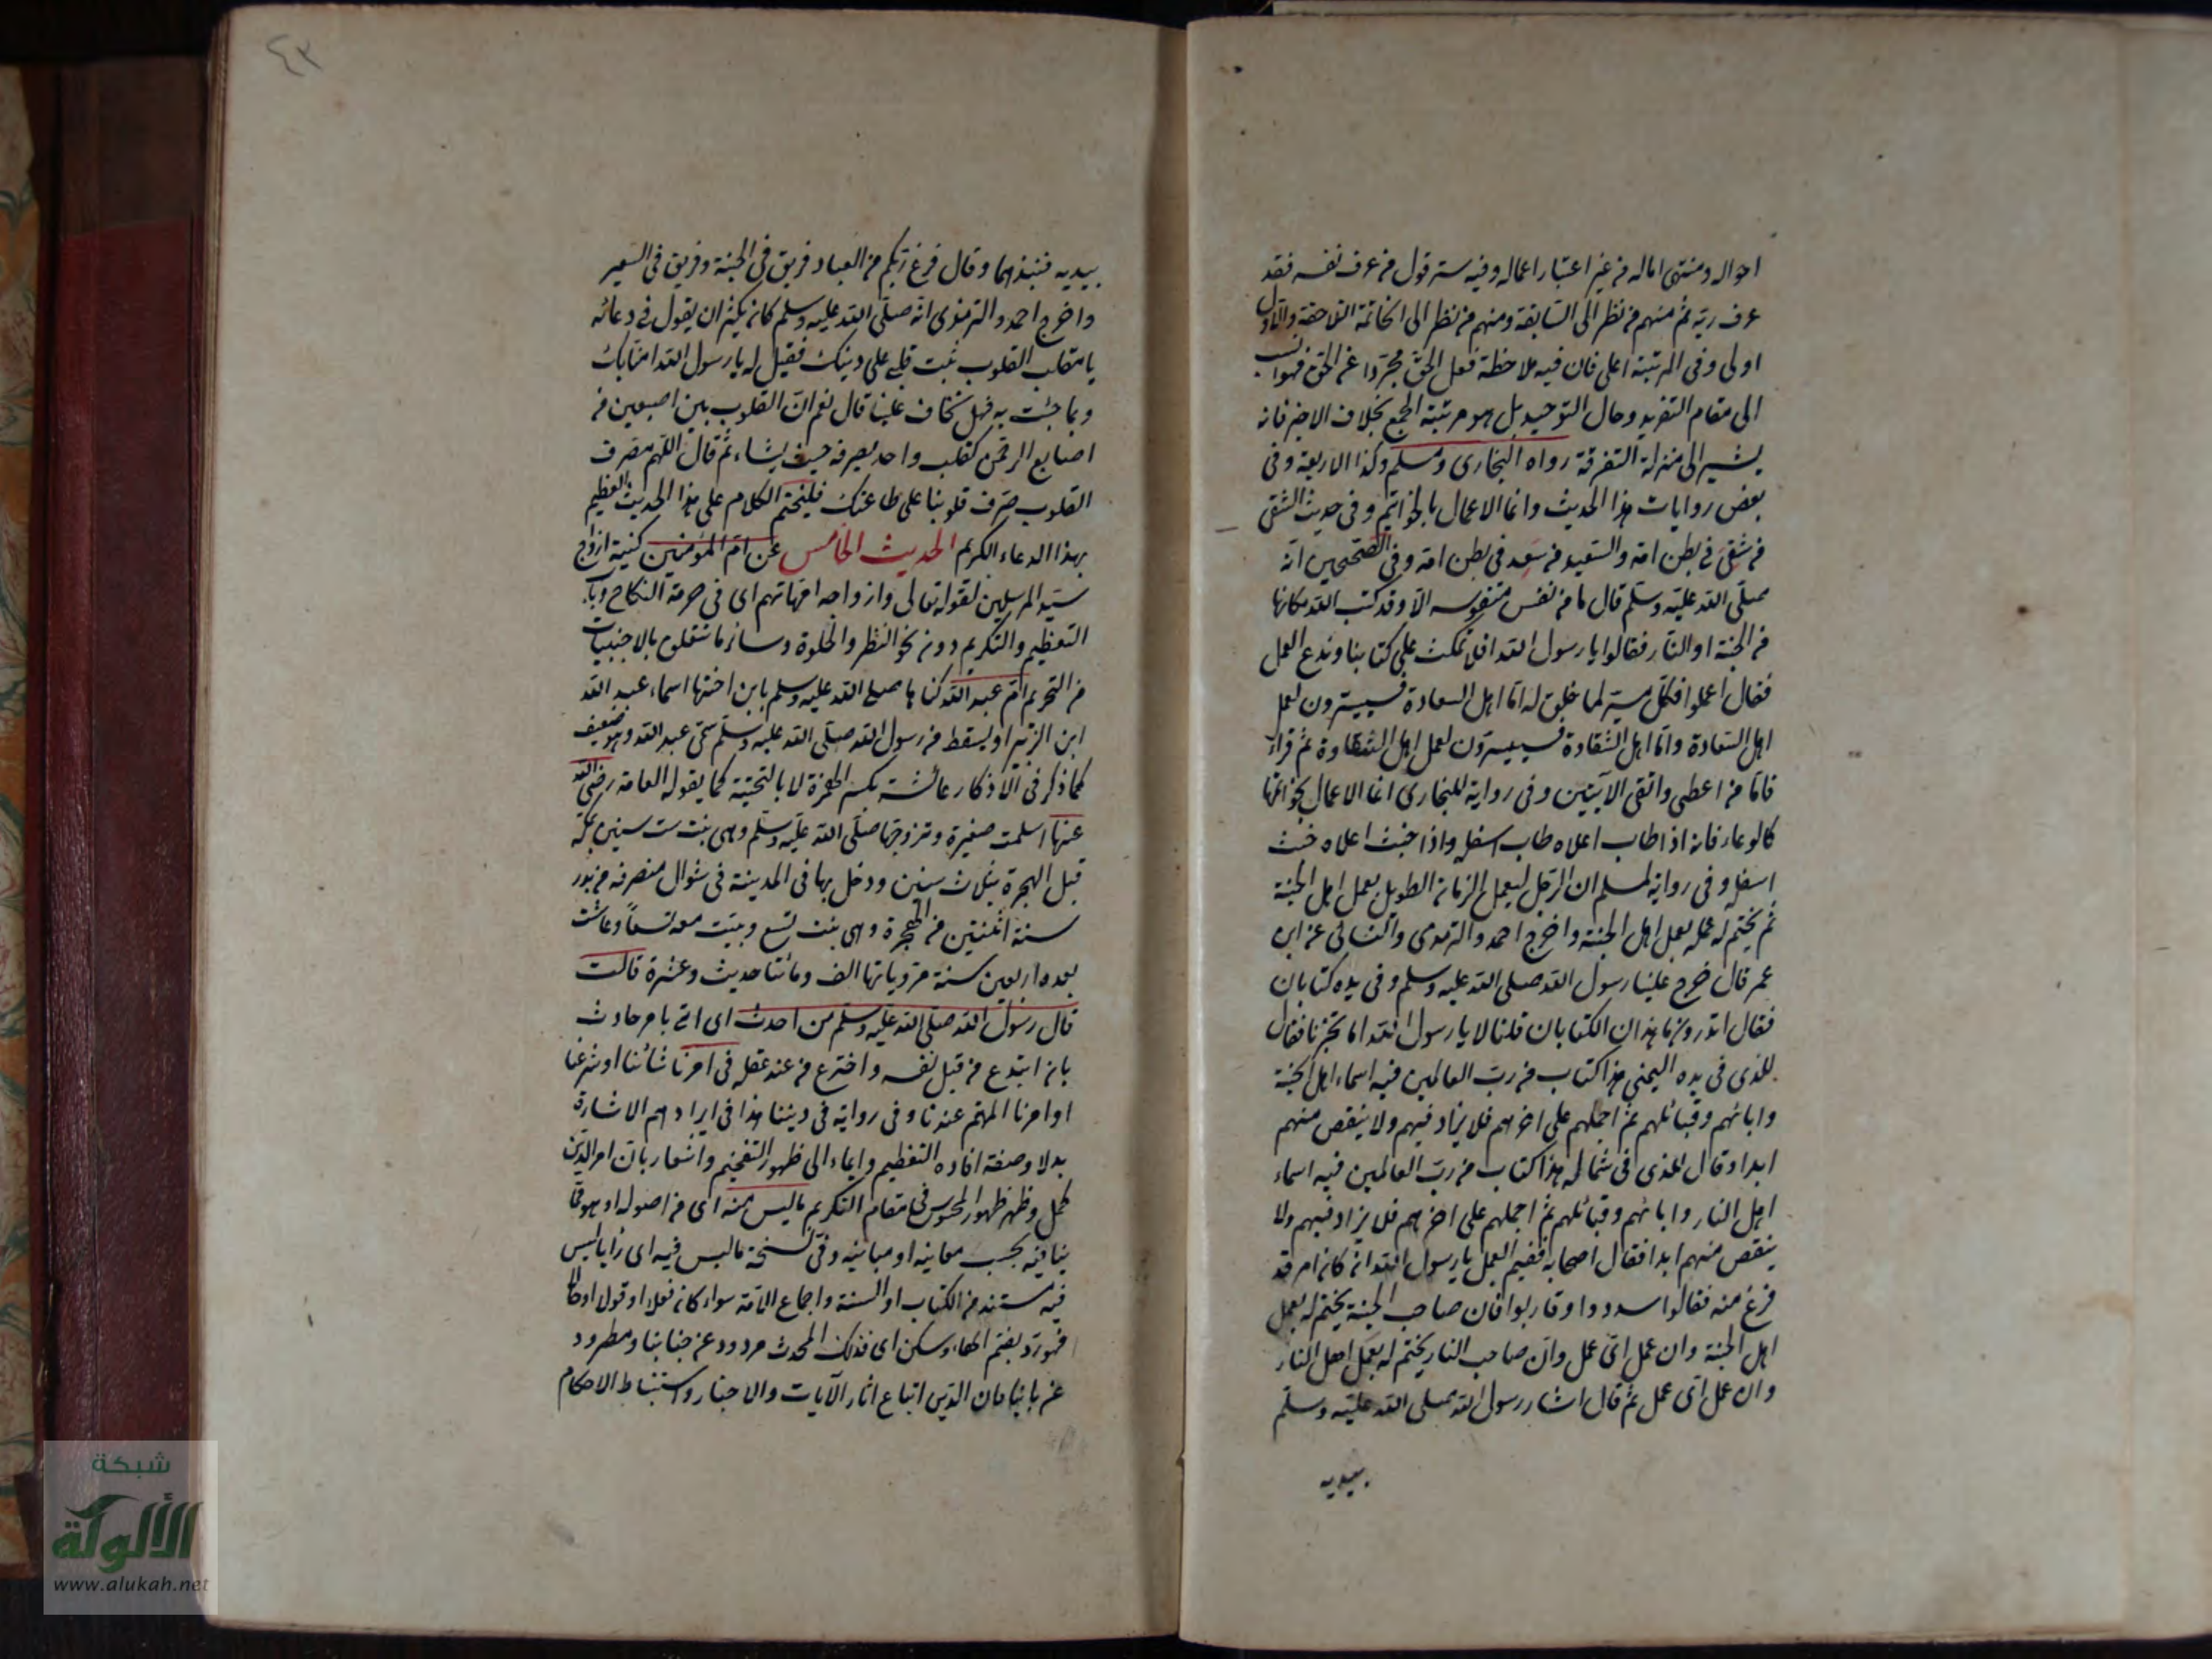 احواله ومنتهى اماله من غير اعتبار اعماله وفيه ستر قول من عرف نفسه فقد
عرف ربه ثم منهم من نظر الى السابقة ومنهم من نظر الى الخاتمة اللاحقة والاول
اولى وفى المرتبة اعلى فان فيه ملاحظة فعل الحق مجردا عن الخلق فهو انسب
الى مقام التفريد وحال التوحيد بل هو مرتبة الجمع بخلاف الاخر فانه
يشير الى منزلة التفرقة رواه البخارى ومسلم وكذا الاربعة وفى
بعض روايات هذا الحديث وانما الاعمال بالخواتيم وفى حديث الشقى
من شقى فى بطن امه والسعيد من سعد فى بطن امه وفى الصحيحين انه
صلى الله عليه وسلم قال ما من نفس منفوسه الا وقد كتب الله مكانها
من الجنة او النار فقالوا يا رسول الله افلا نمكث على كتابنا وندع العمل
فقال اعملوا فكل ميسر لما خلق له اما اهل السعادة فييسرون لعمل
اهل السعادة واما اهل الشقاوة فييسرون لعمل اهل الشقاوة ثم قرأ
فاما من اعطى واتقى الآيتين وفى رواية للبخارى انما الاعمال بخواتمها
كالوعاء فانه اذا طاب اعلاه طاب اسفله واذا خبث اعلاه خبث
اسفله وفى رواية لمسلم ان الرجل ليعمل الزمان الطويل بعمل اهل الجنة
ثم يختم له عمله بعمل اهل الجنة واخرج احمد والترمذى والنسائى عن ابن
عمر قال خرج علينا رسول الله صلى الله عليه وسلم وفى يده كتابان
فقال اتدرون ما هذان الكتابان قلنا لا يا رسول الله اما تخبرنا فقال
للذى فى يده اليمنى هذا كتاب من رب العالمين فيه اسماء اهل الجنة
وابائهم وقبائلهم ثم اجملهم على اخرهم فلا يزاد فيهم ولا ينقص منهم
ابدا وقال للذى فى شماله هذا كتاب من رب العالمين فيه اسماء
اهل النار وابائهم وقبائلهم ثم اجملهم على اخرهم فلا يزاد فيهم ولا
ينقص منهم ابدا فقال اصحابه ففيم العمل يا رسول الله ان كان امر قد
فرغ منه فقالوا سددوا وقاربوا فان صاحب الجنة يختم له بعمل
اهل الجنة وان عمل اى عمل وان صاحب النار يختم له بعمل اهل النار
وان عمل اى عمل ثم قال اشار رسول الله صلى الله عليه وسلم
بيديه
٤٣
بيديه فنبذهما وقال فرغ ربكم من العباد فريق فى الجنة وفريق فى السعير
واخرج احمد والترمذى انه صلى الله عليه وسلم كان يكثر ان يقول فى دعائه
يا مقلب القلوب ثبت قلبى على دينك فقيل له يا رسول الله امنا بك
وبما جئت به فهل تخاف علينا قال نعم ان القلوب بين اصبعين من
اصابع الرحمن كقلب واحد يصرفه حيث يشاء ثم قال اللهم مصرف
القلوب صرف قلوبنا على طاعتك فليختم الكلام على هذا الحديث العظيم
بهذا الدعاء الكريم الحديث الخامس عن ام المؤمنين كنية ازواج
سيد المرسلين لقوله تعالى وازواجه امهاتهم اى فى حرمة النكاح وباب
التعظيم والتكريم دون نحو النظر والخلوة وسائر ما يتعلق بالاجنبيات
من التحريم ام عبد الله كناها صلى الله عليه وسلم بابن اختها اسماء عبد الله
ابن الزبير او بسقط من رسول الله صلى الله عليه وسلم سمى عبد الله وهو ضعيف
كما ذكر فى الاذكار عائشة بكسر الهمزة لا بالتحتية كما يقوله العامة رضى الله
عنها اسلمت صغيرة وتزوجها صلى الله عليه وسلم وهى بنت ست سنين بمكة
قبل الهجرة بثلاث سنين ودخل بها فى المدينة فى شوال منصرفه من بدر
سنة اثنتين من الهجرة وهى بنت تسع وبقيت معه تسعا وعاشت
بعده اربعين سنة مروياتها الف ومائتا حديث وعشرة قالت
قال رسول الله صلى الله عليه وسلم من احدث اى اتى بامر حادث
بان ابتدع من قبل نفسه واخترع من عند عقله فى امرنا شأننا او شرعنا
او امرنا المهتم عندنا وفى رواية فى ديننا هذا فى ايراد اسم الاشارة
بدلا وصفة افادة التعظيم وايماء الى ظهور التفخيم واشعار بان امر الدين
كمل وظهر ظهور المحسوس فى مقام التكريم ما ليس منه اى من اصوله او هو مما
ينافيه بحسب معانيه او مبانيه وفى نسخة ما ليس فيه اى رأيا ليس
فيه مستند من الكتاب او السنة واجماع الامة سواء كان فعلا او قولا او حالا
فهو رد بضم الهاء وسكن اى فذلك المحدث مردود عن جنابنا ومطرود
عن بابنا فان الدين اتباع اثار الآيات والاخبار واستنباط الاحكام
شبكة
الألوكة
www.alukah.net